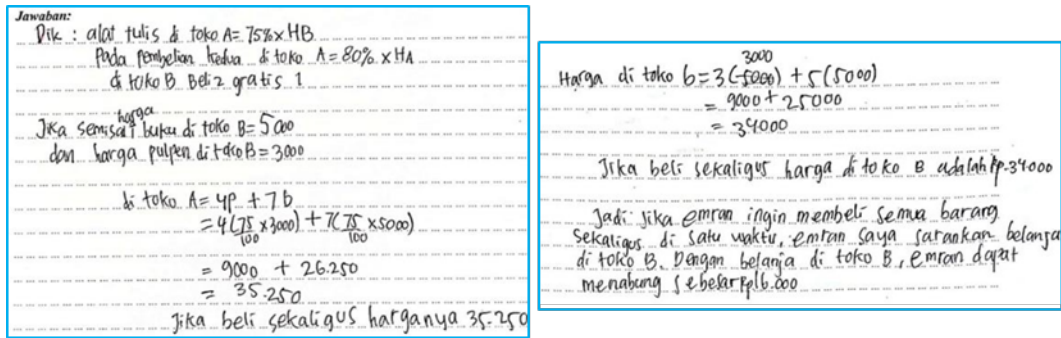 Jawaban:
Dik : alat tulis di toko A = 75% x HB
Pada pembelian kedua di toko A = 80% x HA
di toko B Beli 2 gratis 1
harga
Jika semisal buku di toko B = 5000
dan harga pulpen di toko B = 3000
di toko A = 4p + 7b
= 4(75/100 x 3000) + 7(75/100 x 5000)
= 9000 + 26.250
= 35.250
Jika beli sekaligus harganya 35.250
3000
Harga di toko b = 3(5000) + 5(5000)
= 9000 + 25000
= 34000
Jika beli sekaligus harga di toko B adalah Rp.34000
Jadi jika emran ingin membeli semua barang
sekaligus di satu waktu, emran saya sarankan belanja
di toko B. Dengan belanja di toko B, emran dapat
menabung sebesar Rp16.000